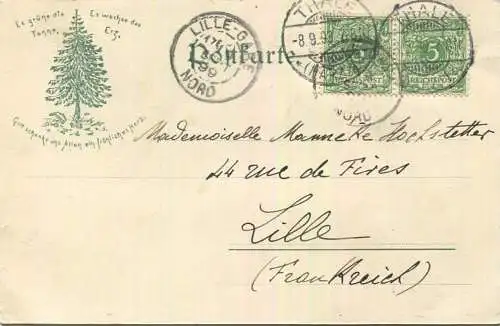 Es grüne die Tanne,
Es wachse das Erz,
Gott schenke uns allen ein fröhliches Herz.
Postkarte
LILLE-GARE
99
NORD
THALE
-8.9.9
(HARZ)
THALE
5 5
REICHSPOST REICHSPOST
NORD
Mademoiselle Manneke Hochstetter
44 rue de Fives
Lille
(Frankreich)